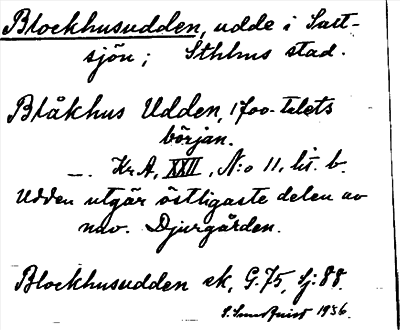 Blockhusudden, udde i Salt-
sjön; Sthlms stad.
Blåkhus Udden, 1700-talets
början.
—. KrA, XXII, N:o 11, lit. b.
Udden utgör östligaste delen av
nuv. Djurgården.
Blockhusudden ek, G.75, Sj:88.
S. Sundquist 1936.